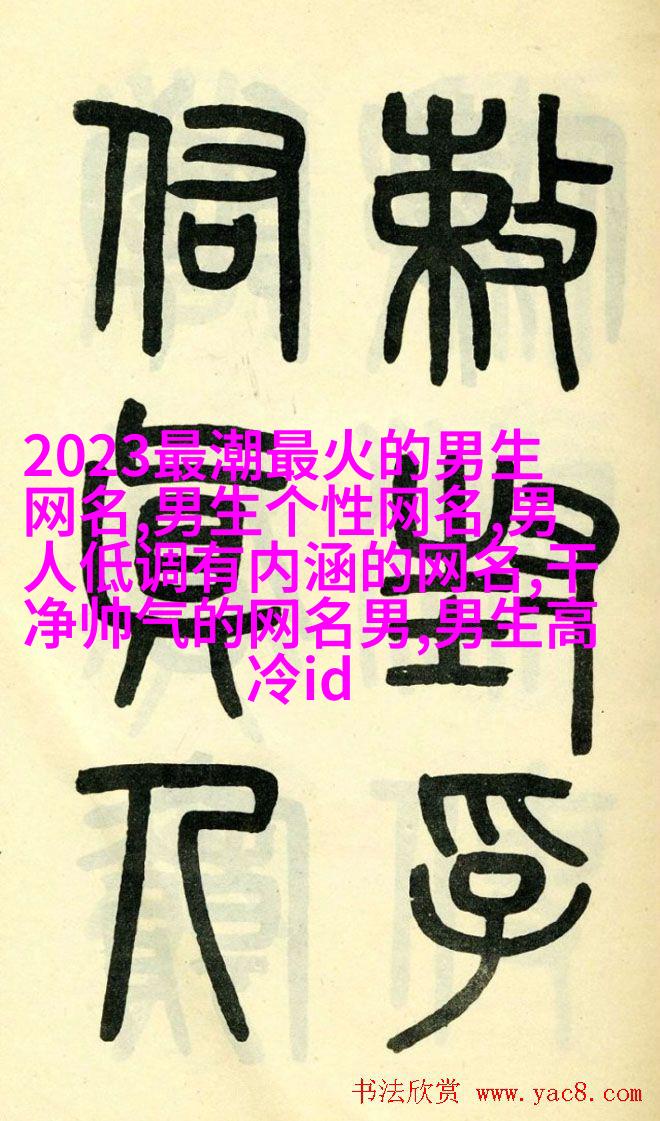 敕封孚
佑真人
2023最潮最火的男生
网名,男生个性网名,男
人低调有内涵的网名,干
净帅气的网名男,男生高
冷id
书法欣赏 www.yac8.com